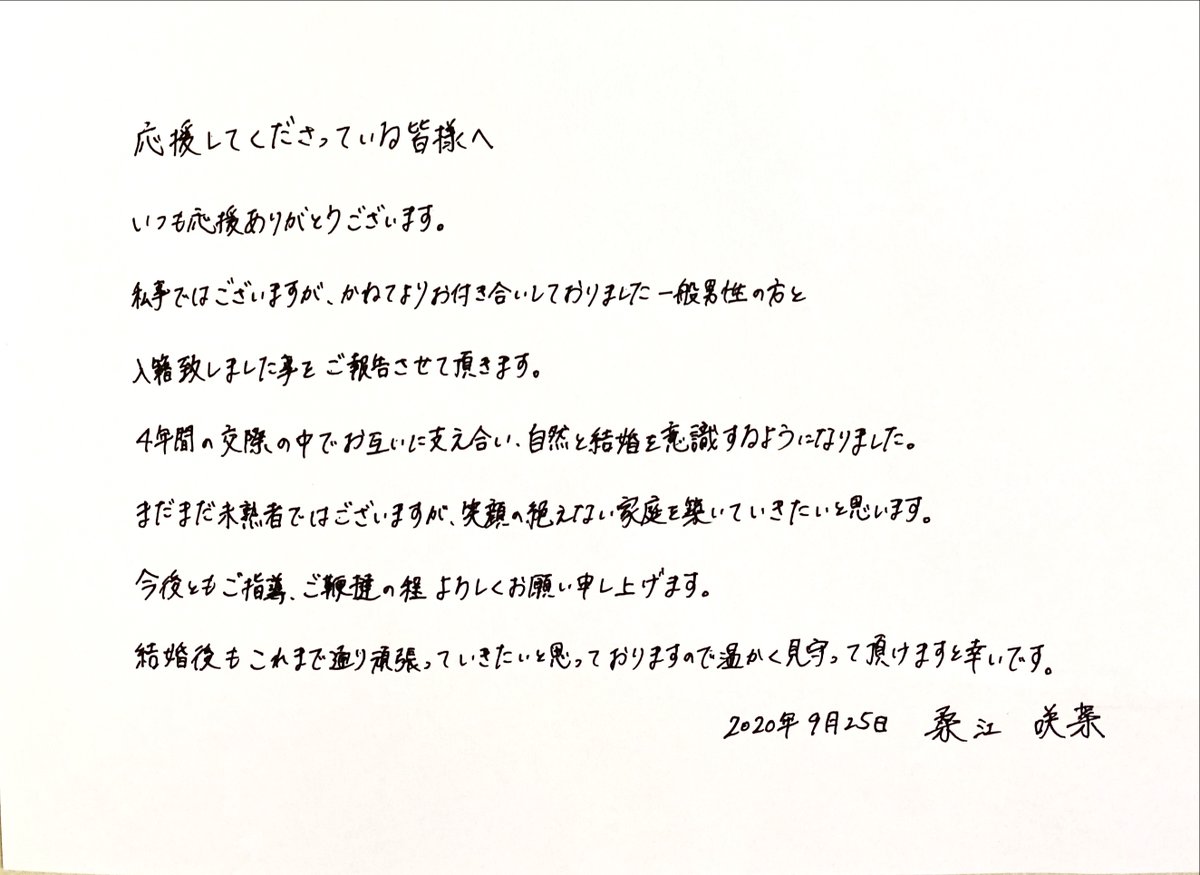 応援してくださっている皆様へ
いつも応援ありがとうございます。
私事ではございますが、かねてよりお付き合いしておりました一般男性の方と
入籍致しました事をご報告させて頂きます。
4年間の交際の中でお互いに支え合い、自然と結婚を意識するようになりました。
まだまだ未熟者ではございますが、笑顔の絶えない家庭を築いていきたいと思います。
今後ともご指導、ご鞭撻の程よろしくお願い申し上げます。
結婚後もこれまで通り頑張っていきたいと思っておりますので温かく見守って頂けますと幸いです。
2020年9月25日 桑江 咲菜